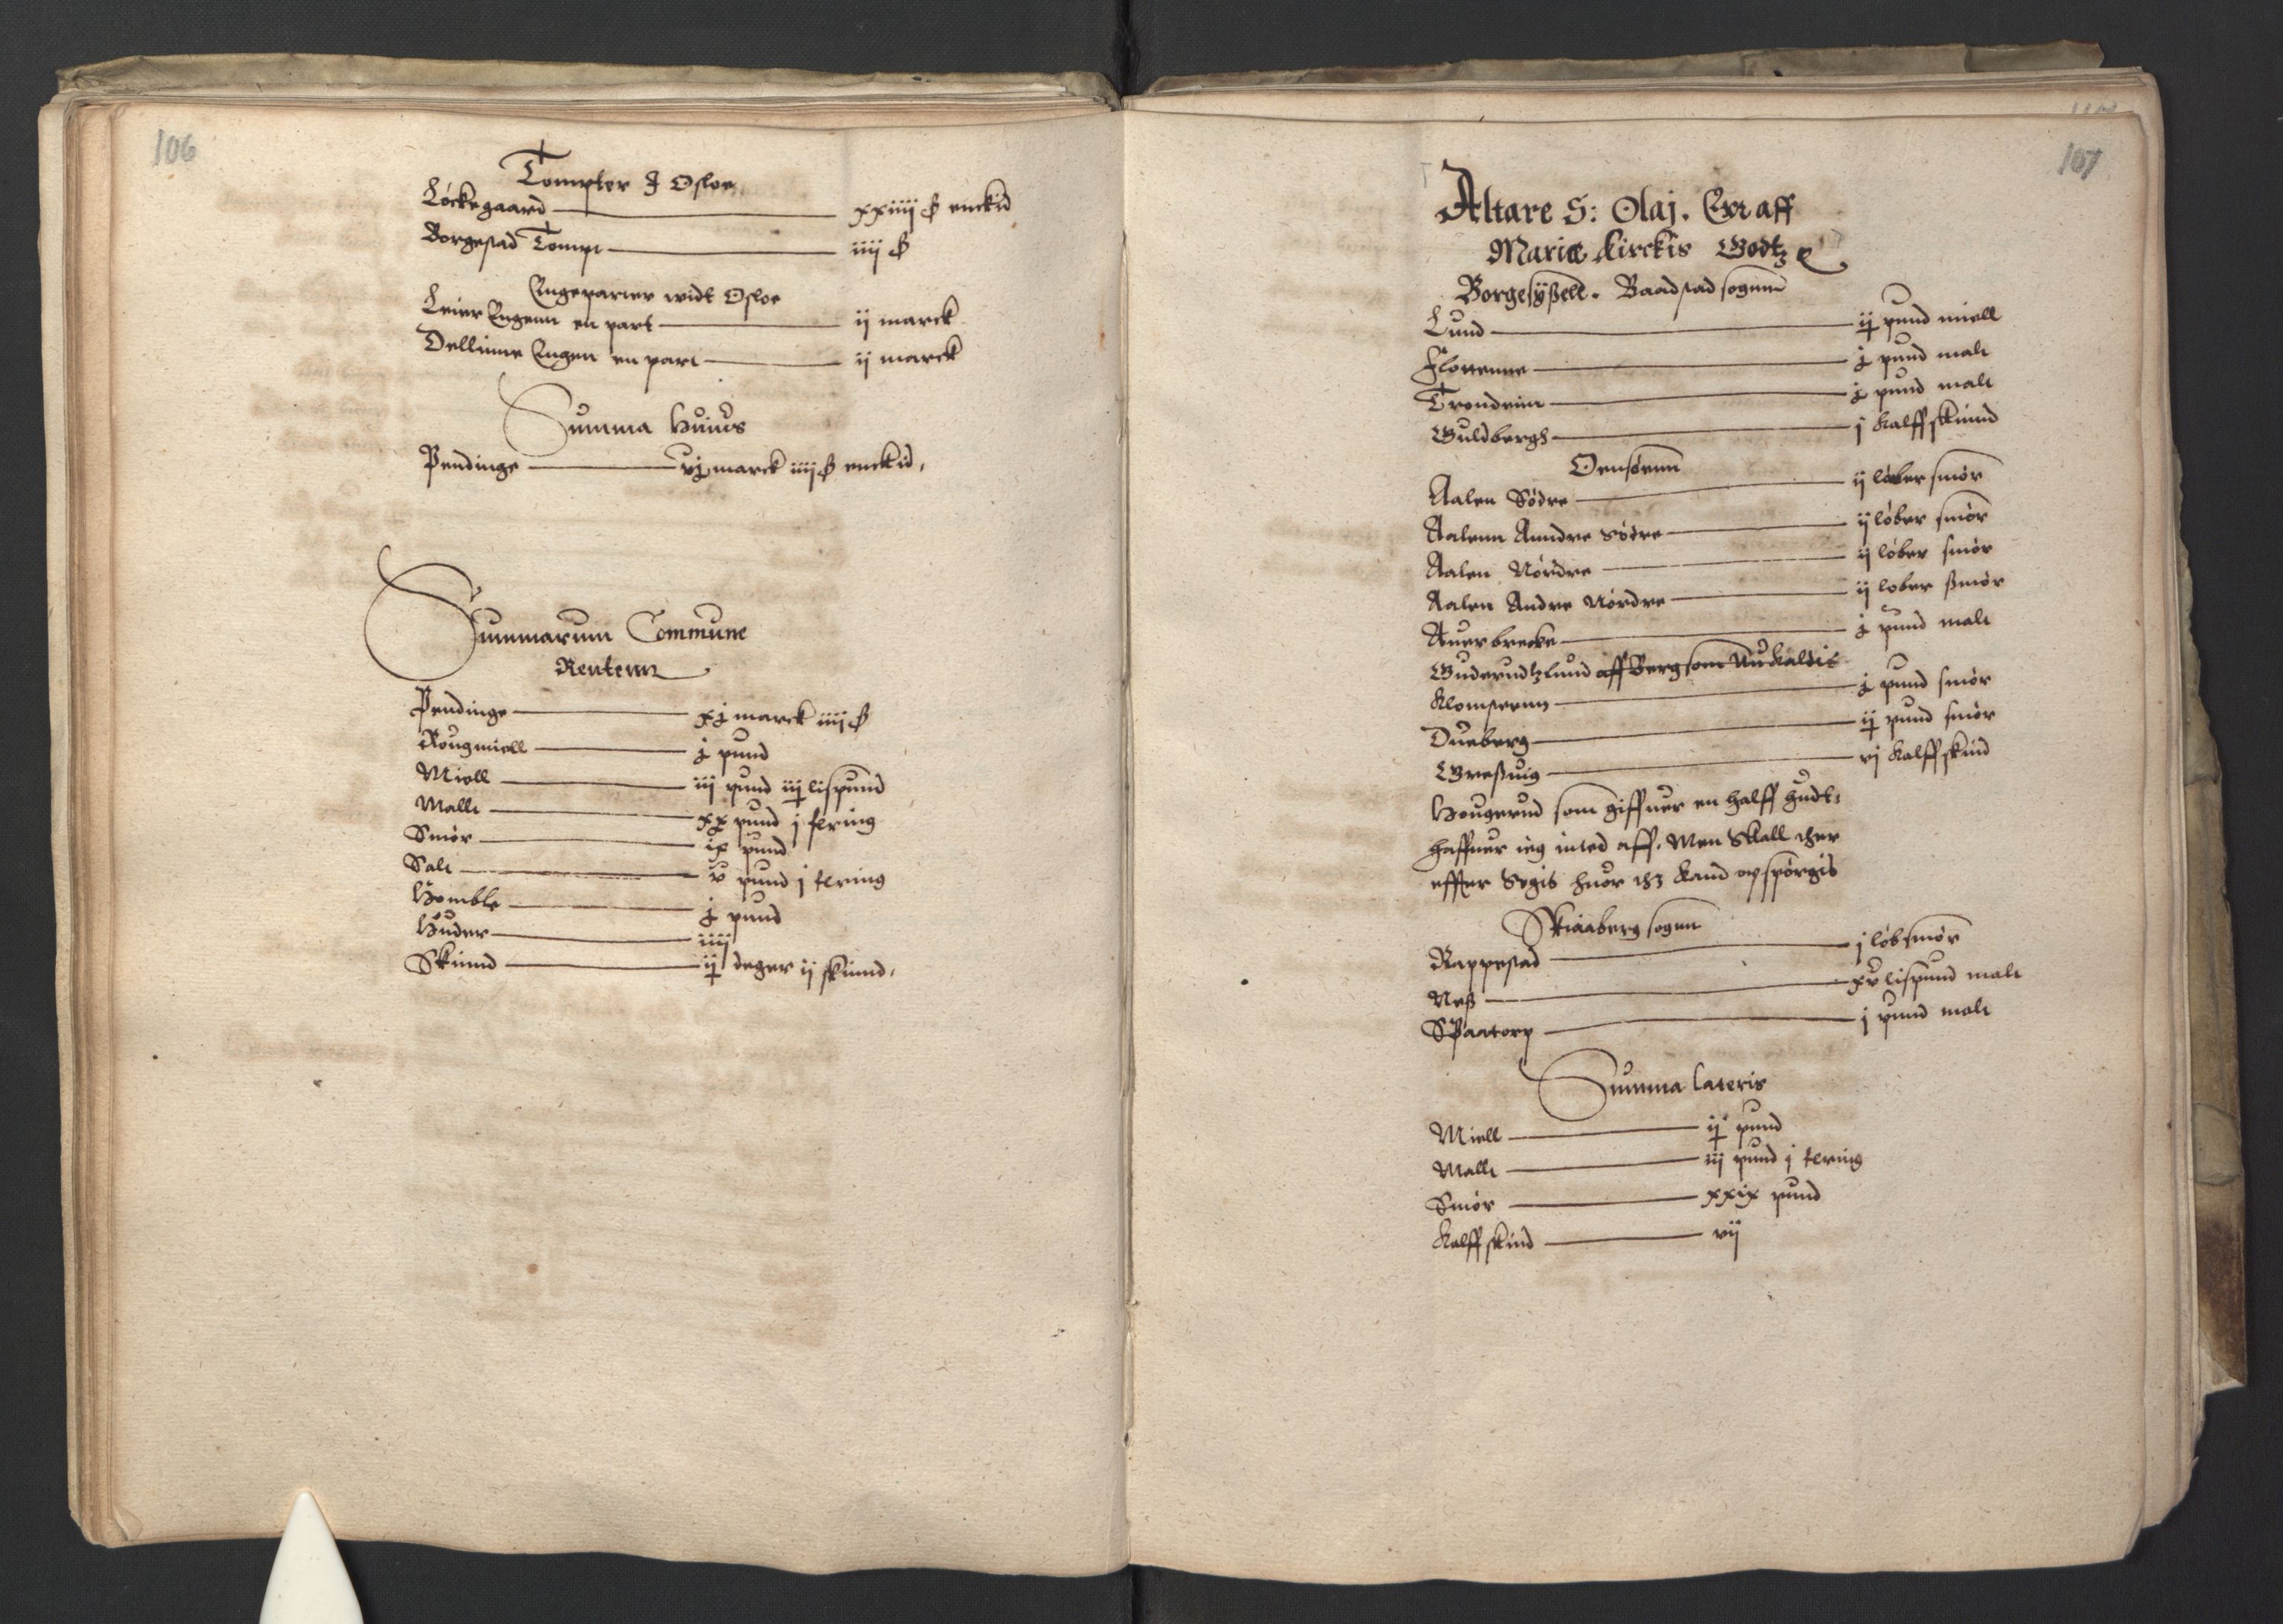 106
Tompter J Osloe
Løckegaard xxiiij ß enckid
Borgestad Tompt iiij ß
Engeparter widt Osloe
Leier Engenn en part ij marck
Dellinne Engen en part ij marck
Summa Huius
Pendinge vj marck iiij ß enckid
Summarum Commune
Rentenn
Pendinge xj marck iiij ß
Rougmiell j pund
Miell iij pund iij lispund
Mallt xx pund j fering
Smør ix pund
Salt v pund j fering
Homble j pund
Huder iiij
Skinnd ij deger ij skinnd
107
Altare S: Olaj. Er aff
Mariæ Kirckis Godtz
Borgesyßell. Baadstad sognn
Lund ij pund miell
Flottenne j pund malt
Trondeim j pund malt
Guldbergh j kalffskinnd
Onsøenn
Aalen Södre ij løber smør
Aalenn Anndre Södre ij løber smør
Aalen Nørdre ij løber smør
Aalen Andre Nørdre ij lober smør
Auerbrecke j pund malt
Guderudtzlund aff Berg som Nu kaldis
Klomstenn j pund smør
Dueberg ij pund smør
Greßuig vj kalffskind
Hougerud som giffuer en halff hudt:
haffuer ieg inted aff. Men Skall ther
effter Søgis huor thz kand opspørgis
Skiaaberg sognn
Rappestad j løb smør
Neß xv lispund malt
Spaatorp j pund malt
Summa lateris
Miell ij pund
Mallt iij pund j fering
Smør xxix pund
Kalffskind vij